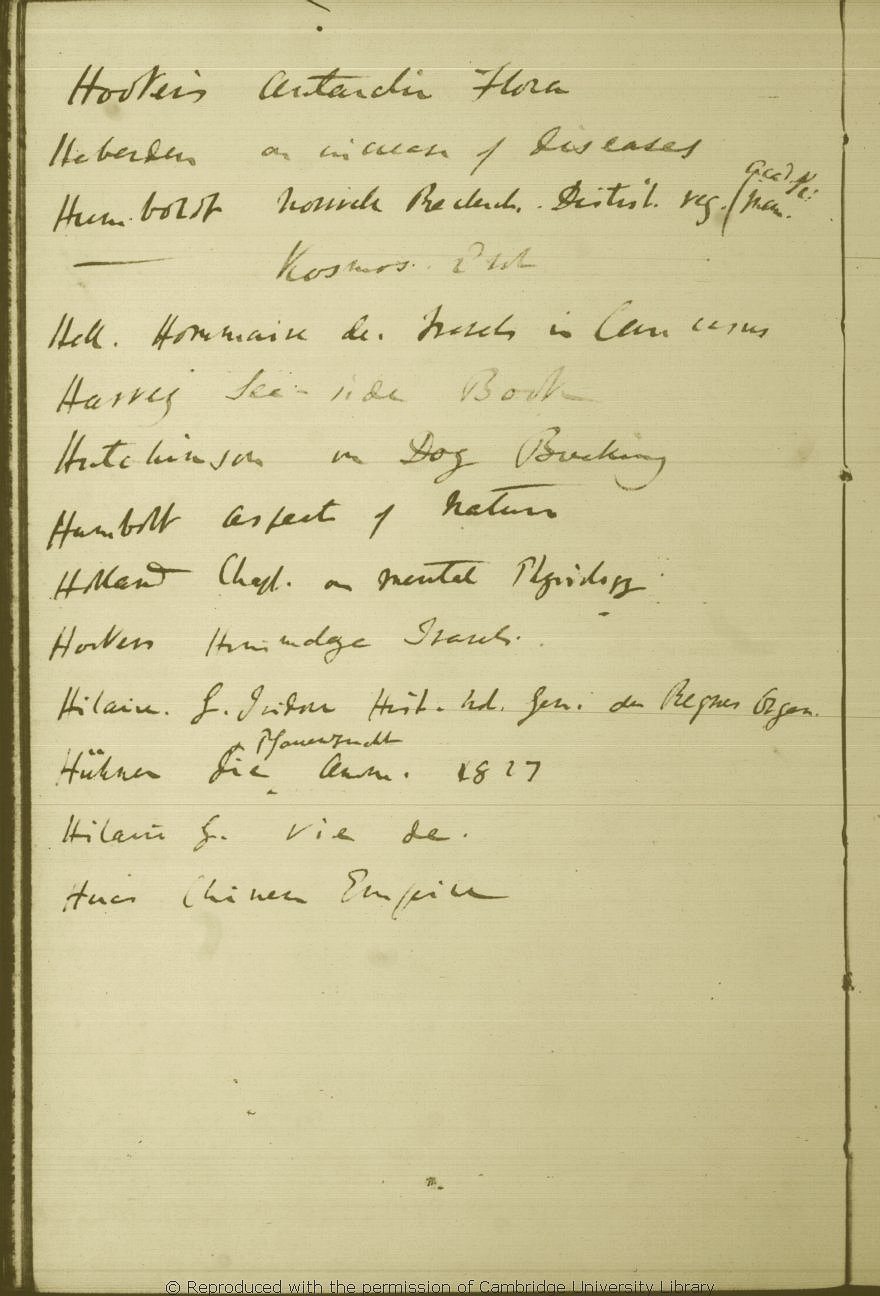 Hooker's Antarctic Flora
Heberden on increase of Diseases
Humboldt Nouvelle Recherch. Distrib. veg. (
Kosmos.
Hell. Hommaire de. Travels in Caucasus
Harvey Sea-side Book
Hutchinson on Dog Breaking
Humboldt Aspects of Nature
Holland Chapt. on Mental Physiology
Hookers Himmalaya Travels.
Hilaire. G. Isidore Hist. Nat. Gen. des Regnes Organ.
Pfauenzucht
Hühner die 1827
Hilaire G. Vie de.
Huc's Chinese Empire
© Reproduced with the permission of Cambridge University Library